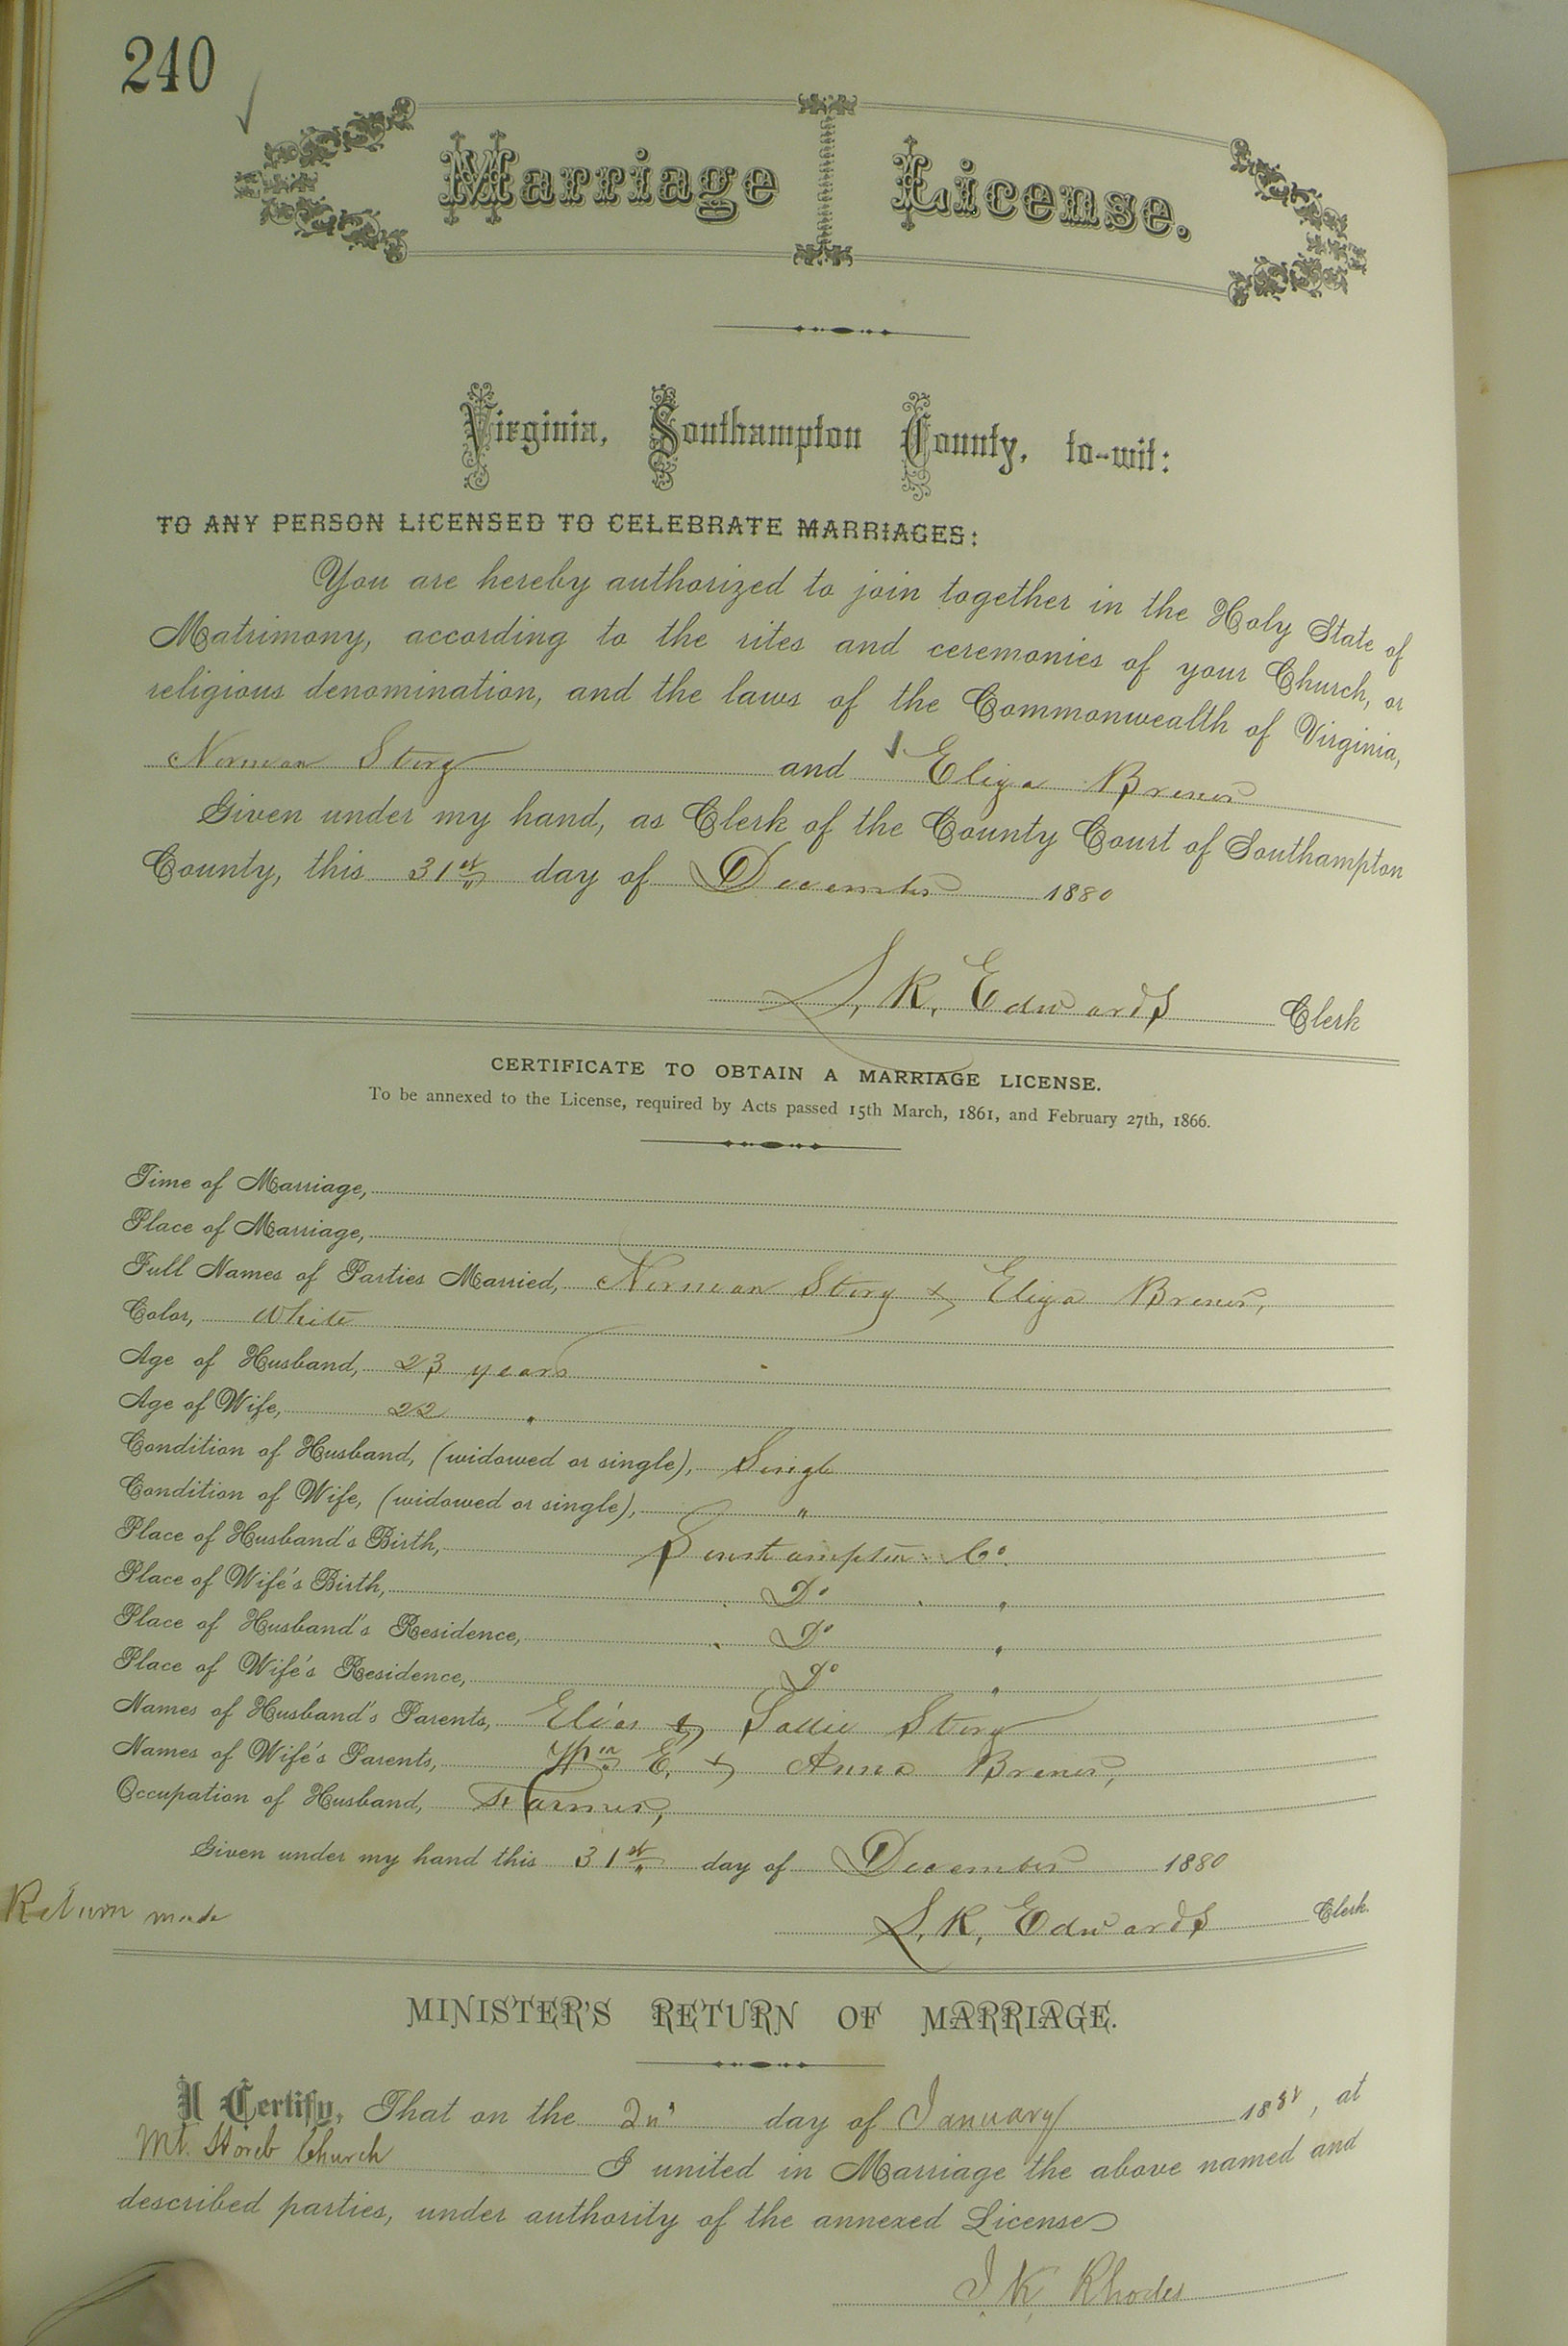 240
Marriage License.
Virginia, Southampton County, to-wit:
TO ANY PERSON LICENSED TO CELEBRATE MARRIAGES:
You are hereby authorized to join together in the Holy State of
Matrimony, according to the rites and ceremonies of your Church, or
religious denomination, and the laws of the Commonwealth of Virginia,
Norman Story and Eliza Brewer
Given under my hand, as Clerk of the County Court of Southampton
County, this 31st day of December 1880
L. R. Edwards Clerk
CERTIFICATE TO OBTAIN A MARRIAGE LICENSE.
To be annexed to the License, required by Acts passed 15th March, 1861, and February 27th, 1866.
Time of Marriage,
Place of Marriage,
Full Names of Parties Married, Norman Story & Eliza Brewer,
Color, White
Age of Husband, 23 years
Age of Wife, 22 "
Condition of Husband, (widowed or single), Single
Condition of Wife, (widowed or single), "
Place of Husband's Birth, Southampton Co.
Place of Wife's Birth, Do "
Place of Husband's Residence, Do "
Place of Wife's Residence, Do "
Names of Husband's Parents, Elias & Sallie Story
Names of Wife's Parents, Wm E. & Anna Brewer,
Occupation of Husband, Farmer,
Given under my hand this 31st day of December 1880
Return made
L. R. Edwards Clerk.
MINISTER'S RETURN OF MARRIAGE.
I Certify, That on the 2nd day of January 1881, at
Mt. Horeb Church I united in Marriage the above named and
described parties, under authority of the annexed License
J. K. Rhodes